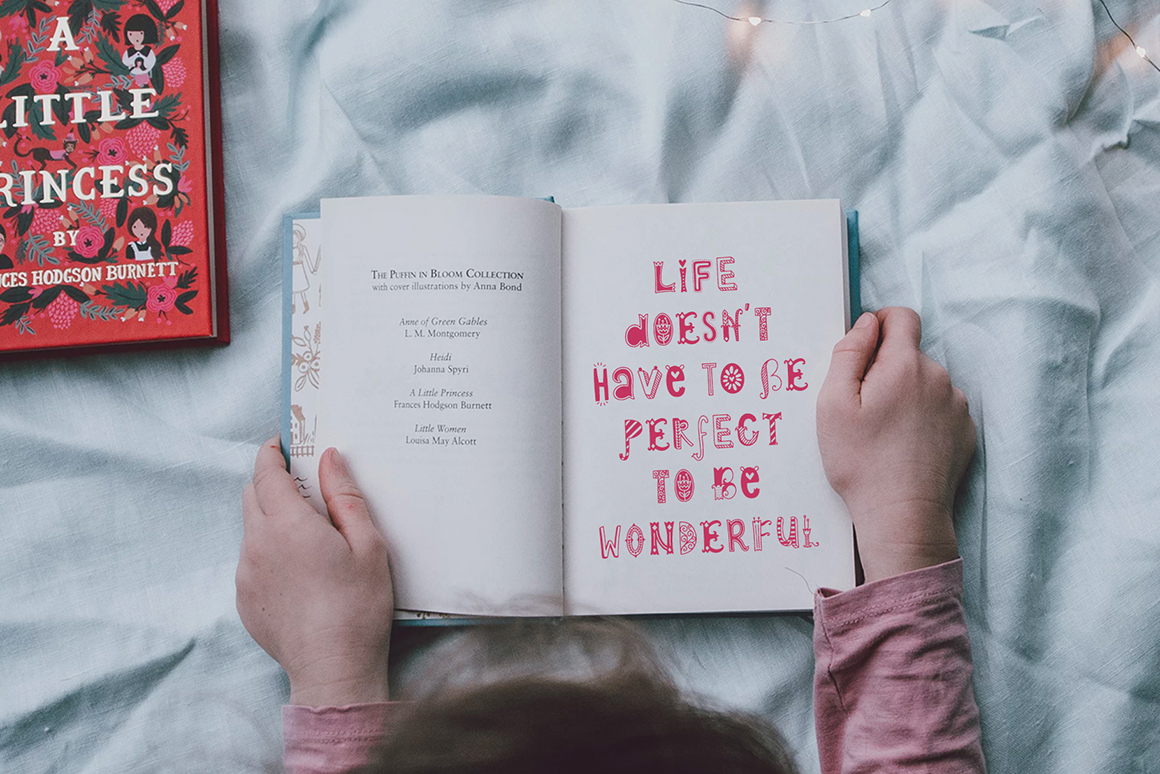 A
LITTLE
PRINCESS
BY
FRANCES HODGSON BURNETT
THE PUFFIN IN BLOOM COLLECTION
with cover illustrations by Anna Bond
Anne of Green Gables
L. M. Montgomery
Heidi
Johanna Spyri
A Little Princess
Frances Hodgson Burnett
Little Women
Louisa May Alcott
LiFE
dOESN'T
HavE TO BE
PERFECT
TO BE
WONDERFUL